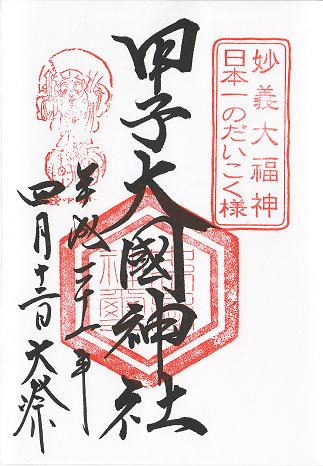 妙義大福神
日本一のだいこく様
甲子大國神社
平成二十一年
四月十二日大祭